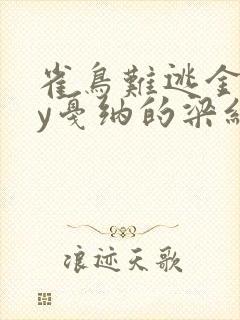 雀鳥難逃金
y戛纳的梁緹
浪迹天歌